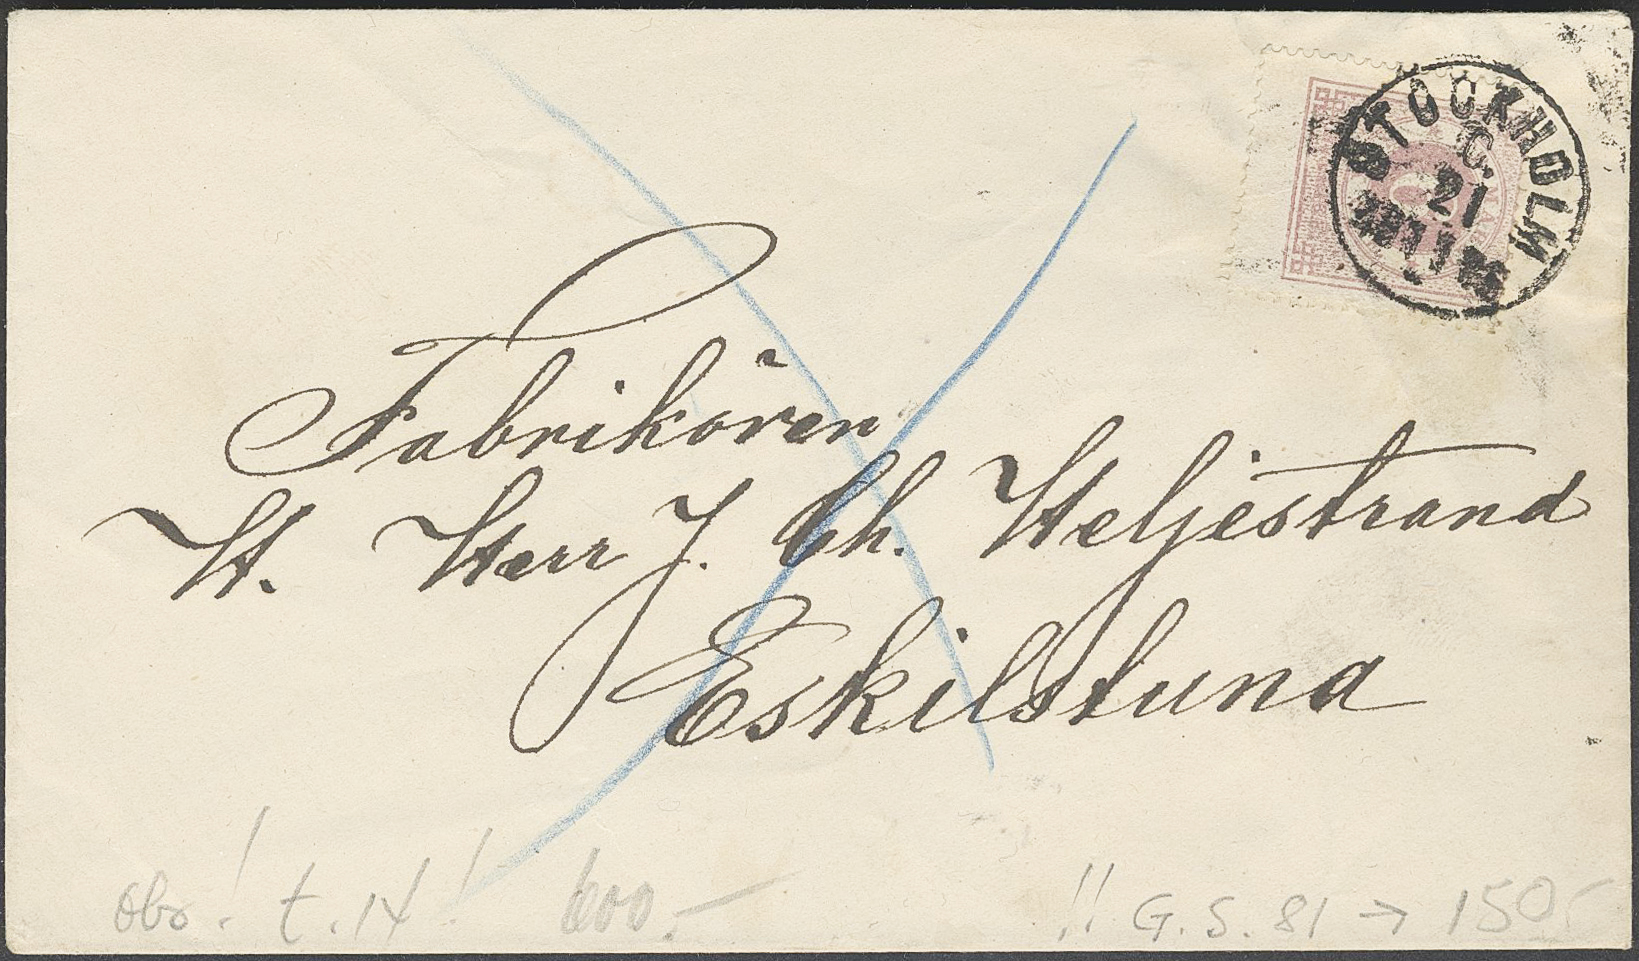 STOCKHOLM
C.
21
Fabrikören
H. Herr J. Ch. Heljestrand
Eskilstuna
Obs! t. 14! 600.-
!! G. S. 81 → 150:-